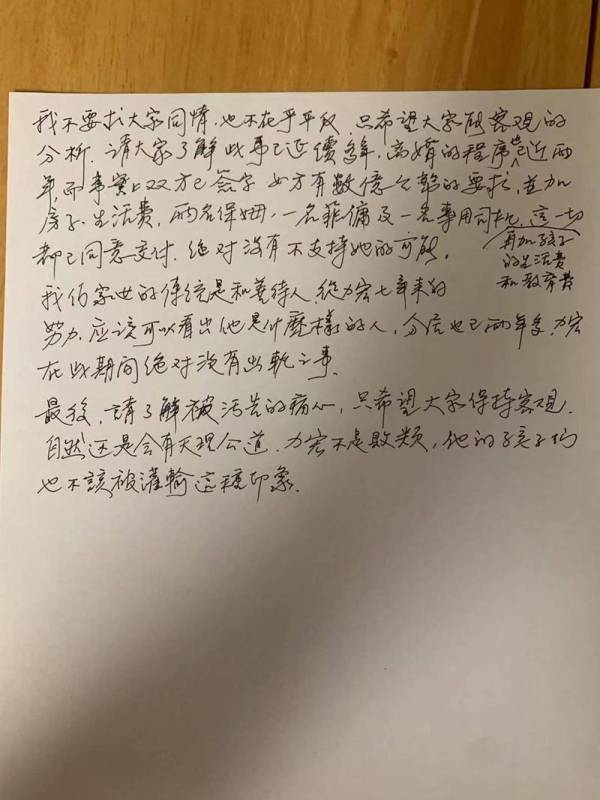 我不要求大家同情.也不在乎平反.只希望大家能客观的
分析.请大家了解此事已延續多年.离婚的程序也已近两
年,而事實上双方已簽字.女方有數億台幣的要求,並加
房子.生活費.两名保姆.一名菲傭及一名專用司机.這一切
再加孩子
的生活费
和教育费
都已同意支付.绝对没有不支持她的可能.
我们家世的傳統是和善待人.從力宏七年来的
努力.应該可以看出他是什麼樣的人.分居也已两年多.力宏
在此期间绝对没有出軌之事.
最後,請了解被汚告的痛心,只希望大家保持客观.
自然还是会有天理公道.力宏不是敗類,他的孩子们
也不該被灌輸這種印象.